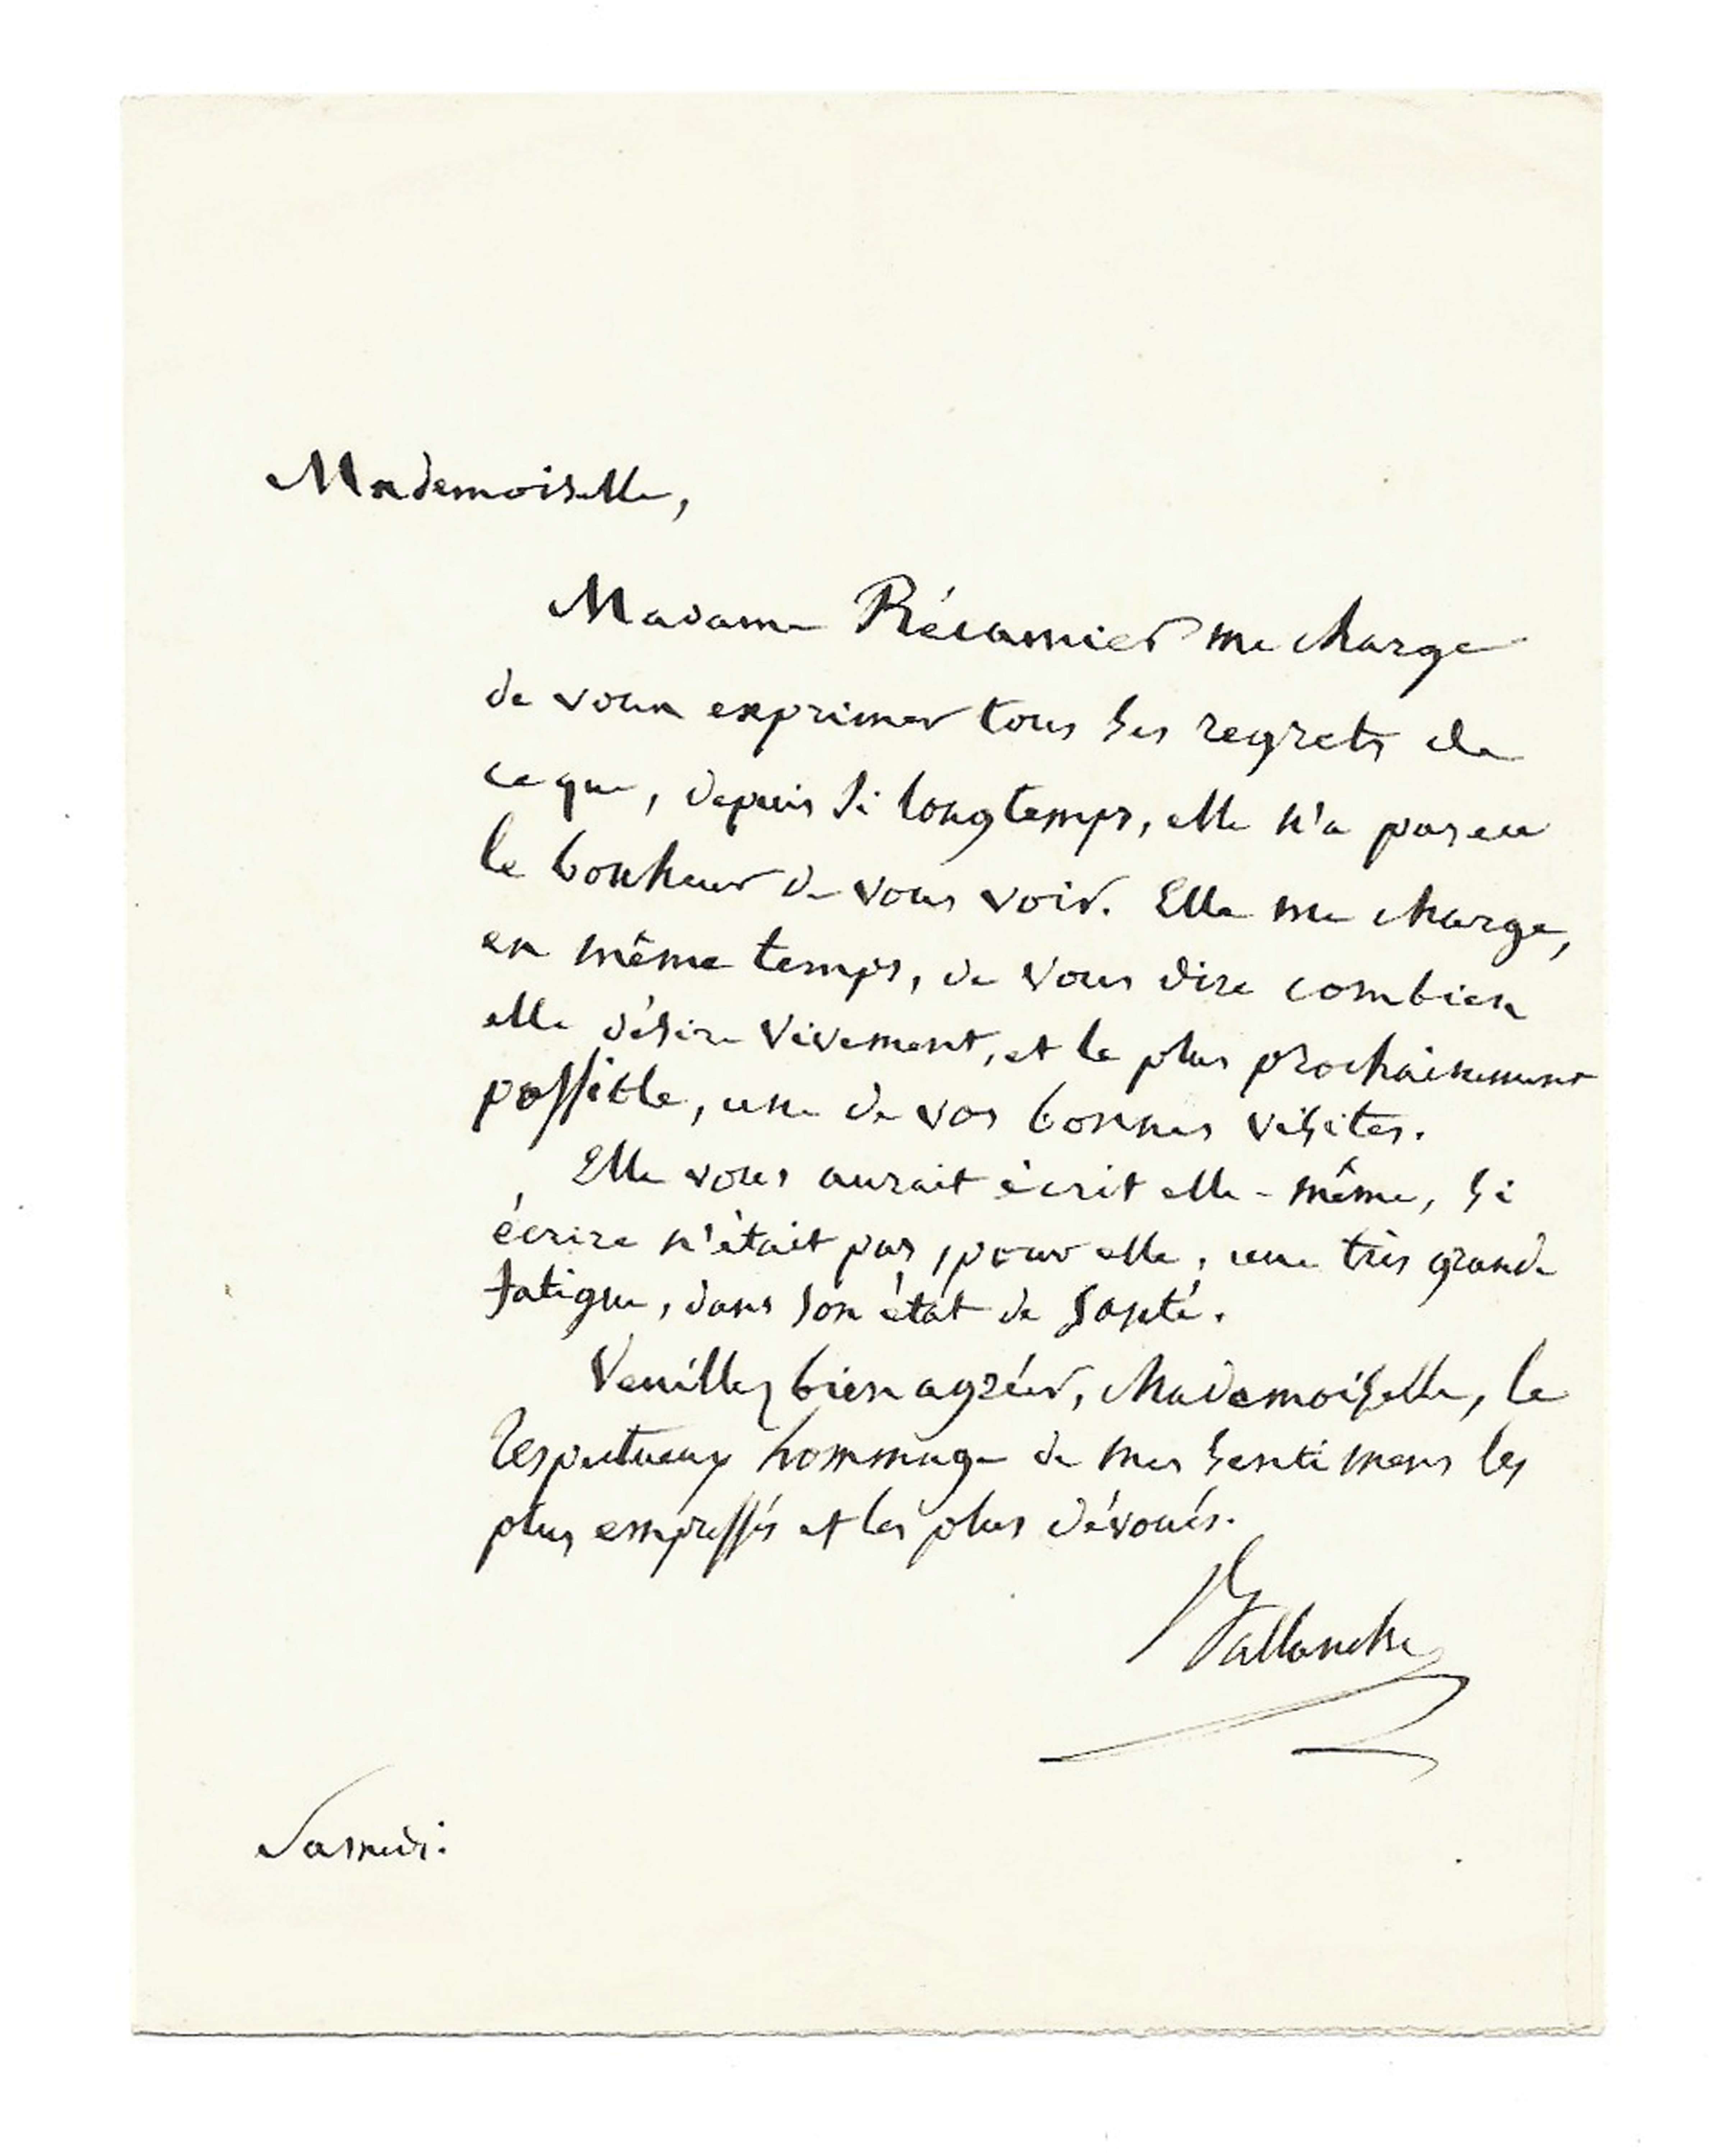 Mademoiselle,
Madame Récamier me charge
de vous exprimer tous ses regrets de
ce que, depuis si longtemps, elle n'a pas eu
le bonheur de vous voir. Elle me charge,
en même temps, de vous dire combien
elle désire vivement, et le plus prochainement
possible, une de vos bonnes visites.
Elle vous aurait écrit elle-même, si
écrire n'était pas, pour elle, une très grande
fatigue, dans son état de santé.
Veuillez bien agréer, Mademoiselle, le
respectueux hommage de mes sentimens les
plus empressés et les plus dévoués.
Ballanche
Samedi.